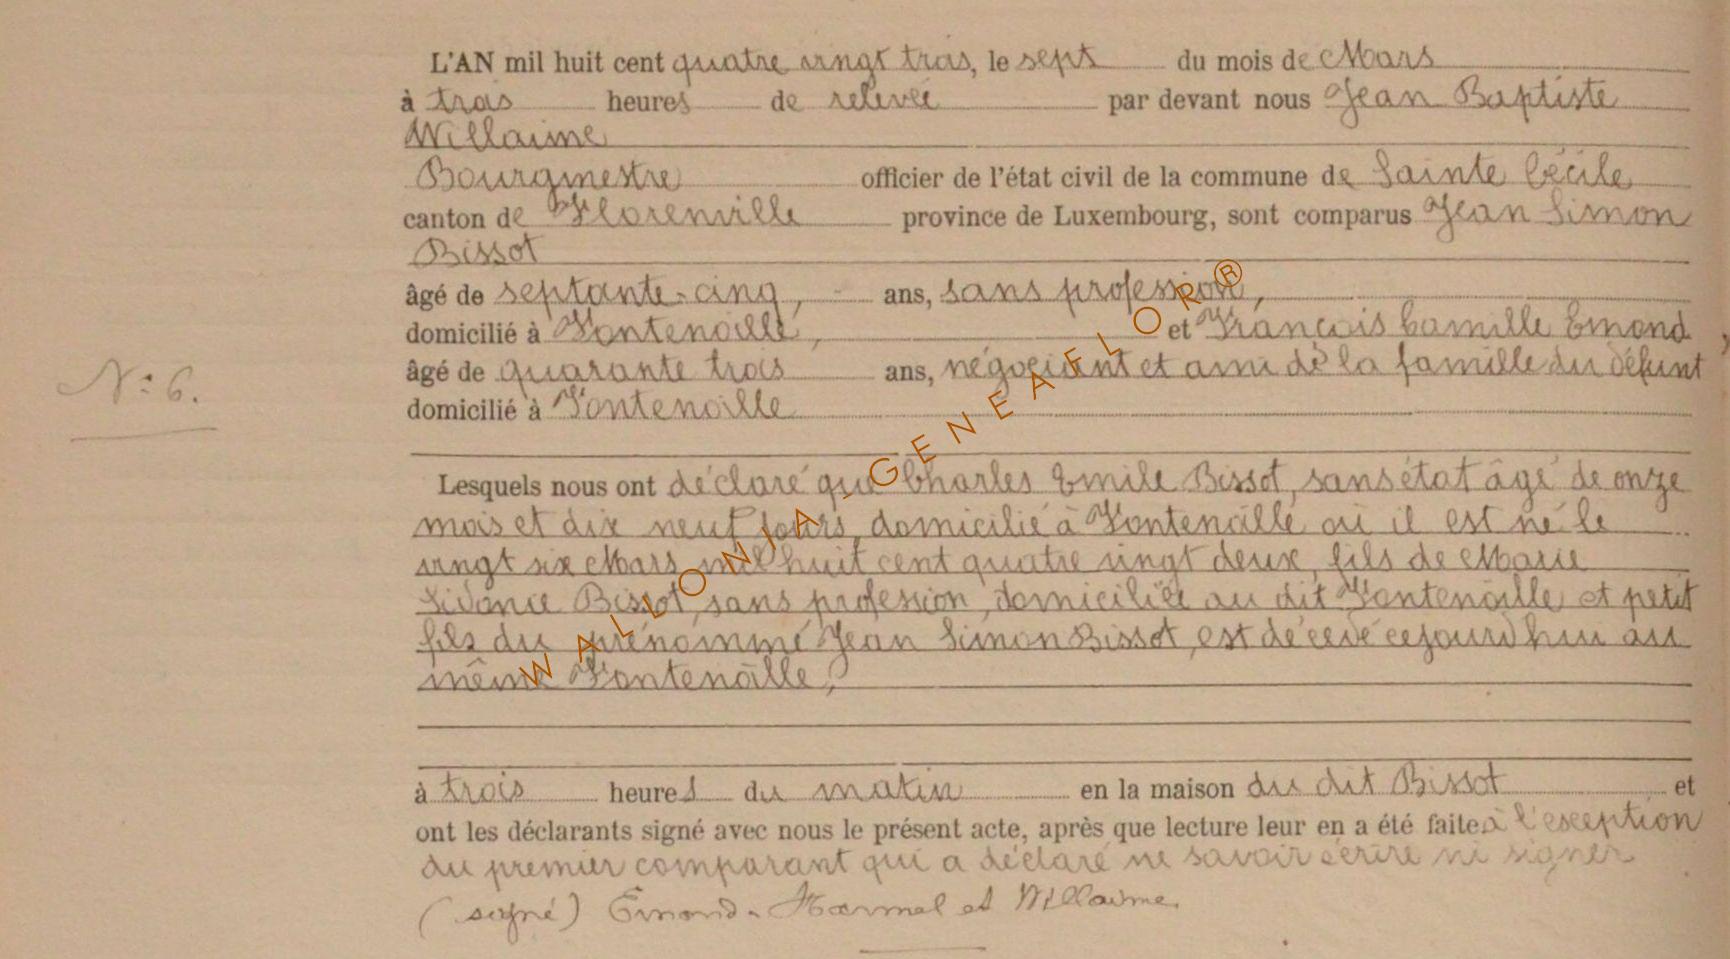 L'AN mil huit cent quatre vingt trois, le sept du mois de Mars
à trois heures de relevée par devant nous Jean Baptiste
Willaime
Bourgmestre officier de l'état civil de la commune de Sainte Cécile
canton de Florenville province de Luxembourg, sont comparus Jean Simon
Bissot
âgé de septante-cinq, ans, sans profession,
domicilié à Fontenoille, et François Camille Emond,
âgé de quarante trois ans, négociant et ami de la famille du défunt
domicilié à Fontenoille
N° 6.
Lesquels nous ont déclaré que Charles Emile Bissot, sans état âgé de onze
mois et dix neuf jours, domicilié à Fontenoille où il est né le
vingt six Mars mil huit cent quatre vingt deux, fils de Marie
Sidonie Bissot, sans profession, domiciliée au dit Fontenoille et petit
fils du prénommé Jean Simon Bissot, est décédé cejourd'hui au
même Fontenoille,
à trois heures du matin en la maison du dit Bissot et
ont les déclarants signé avec nous le présent acte, après que lecture leur en a été faite à l'exception
du premier comparant qui a déclaré ne savoir écrire ni signer
(signé) Emond-Harmel et Willaime.
WALLONIA-GENEAFLOR®